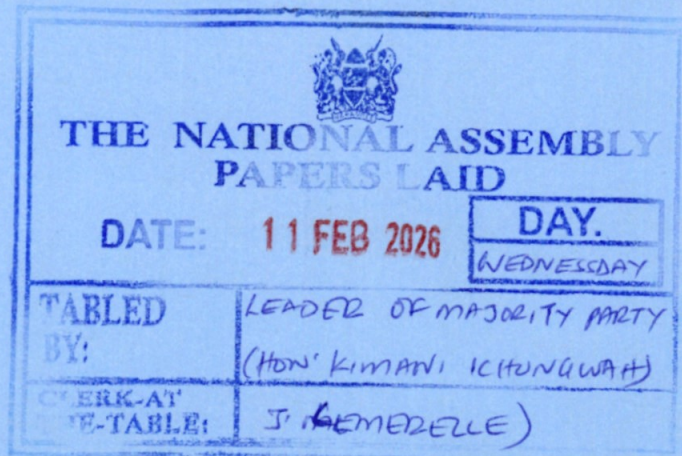 THE NATIONAL ASSEMBLY
PAPERS LAID
DATE: 11 FEB 2026
DAY.
WEDNESSDAY
TABLED BY:
LEADER OF MAJORITY PARTY
(HON' KIMANI ICHUNGWAH)
CLERK-AT THE-TABLE:
J.